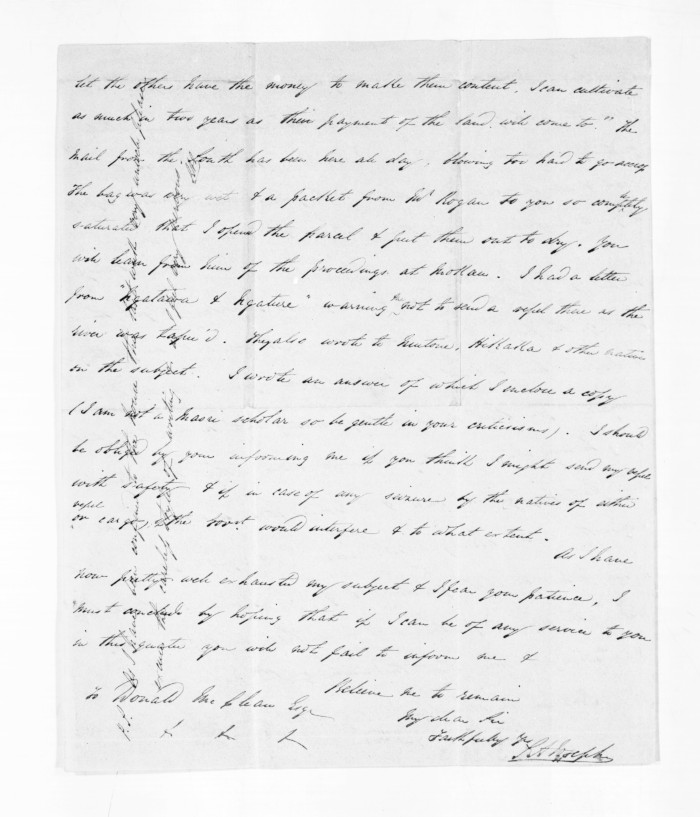 let the others have the money to make them content. I can cultivate
as much in two years as their payment of the land will come to." The
Mail from the South has been here all day, blowing too hard to go across
The bag was very wet & a packet from Mr Rogan to you so completely
saturated that I opened the parcel & put them out to dry. You
will learn from him of the proceedings at Mokau. I had a letter
from "Ngatawa & Ngature" warning me not to send a vessel there as the
river was tapu'd. They also wrote to Hikaka & other natives
on the subject. I wrote an answer of which I enclose a copy
(I am not a Maori scholar so be gentle in your criticisms). I should
be obliged by your informing me if you think I might send my vessel
with safety & if in case of any seizure by the natives of either
vessel
or cargo, the Govt would interfere & to what extent.
As I have
now pretty well exhausted my subject & I fear your patience, I
must conclude by hoping that if I can be of any service to you
in this quarter you will not fail to inform me &
Believe me to remain
My dear Sir
Faithfully Yrs
To Donald McLean Esqre
& & &
P.S. I have been confined to the house this last week
excuse the careless style of writing